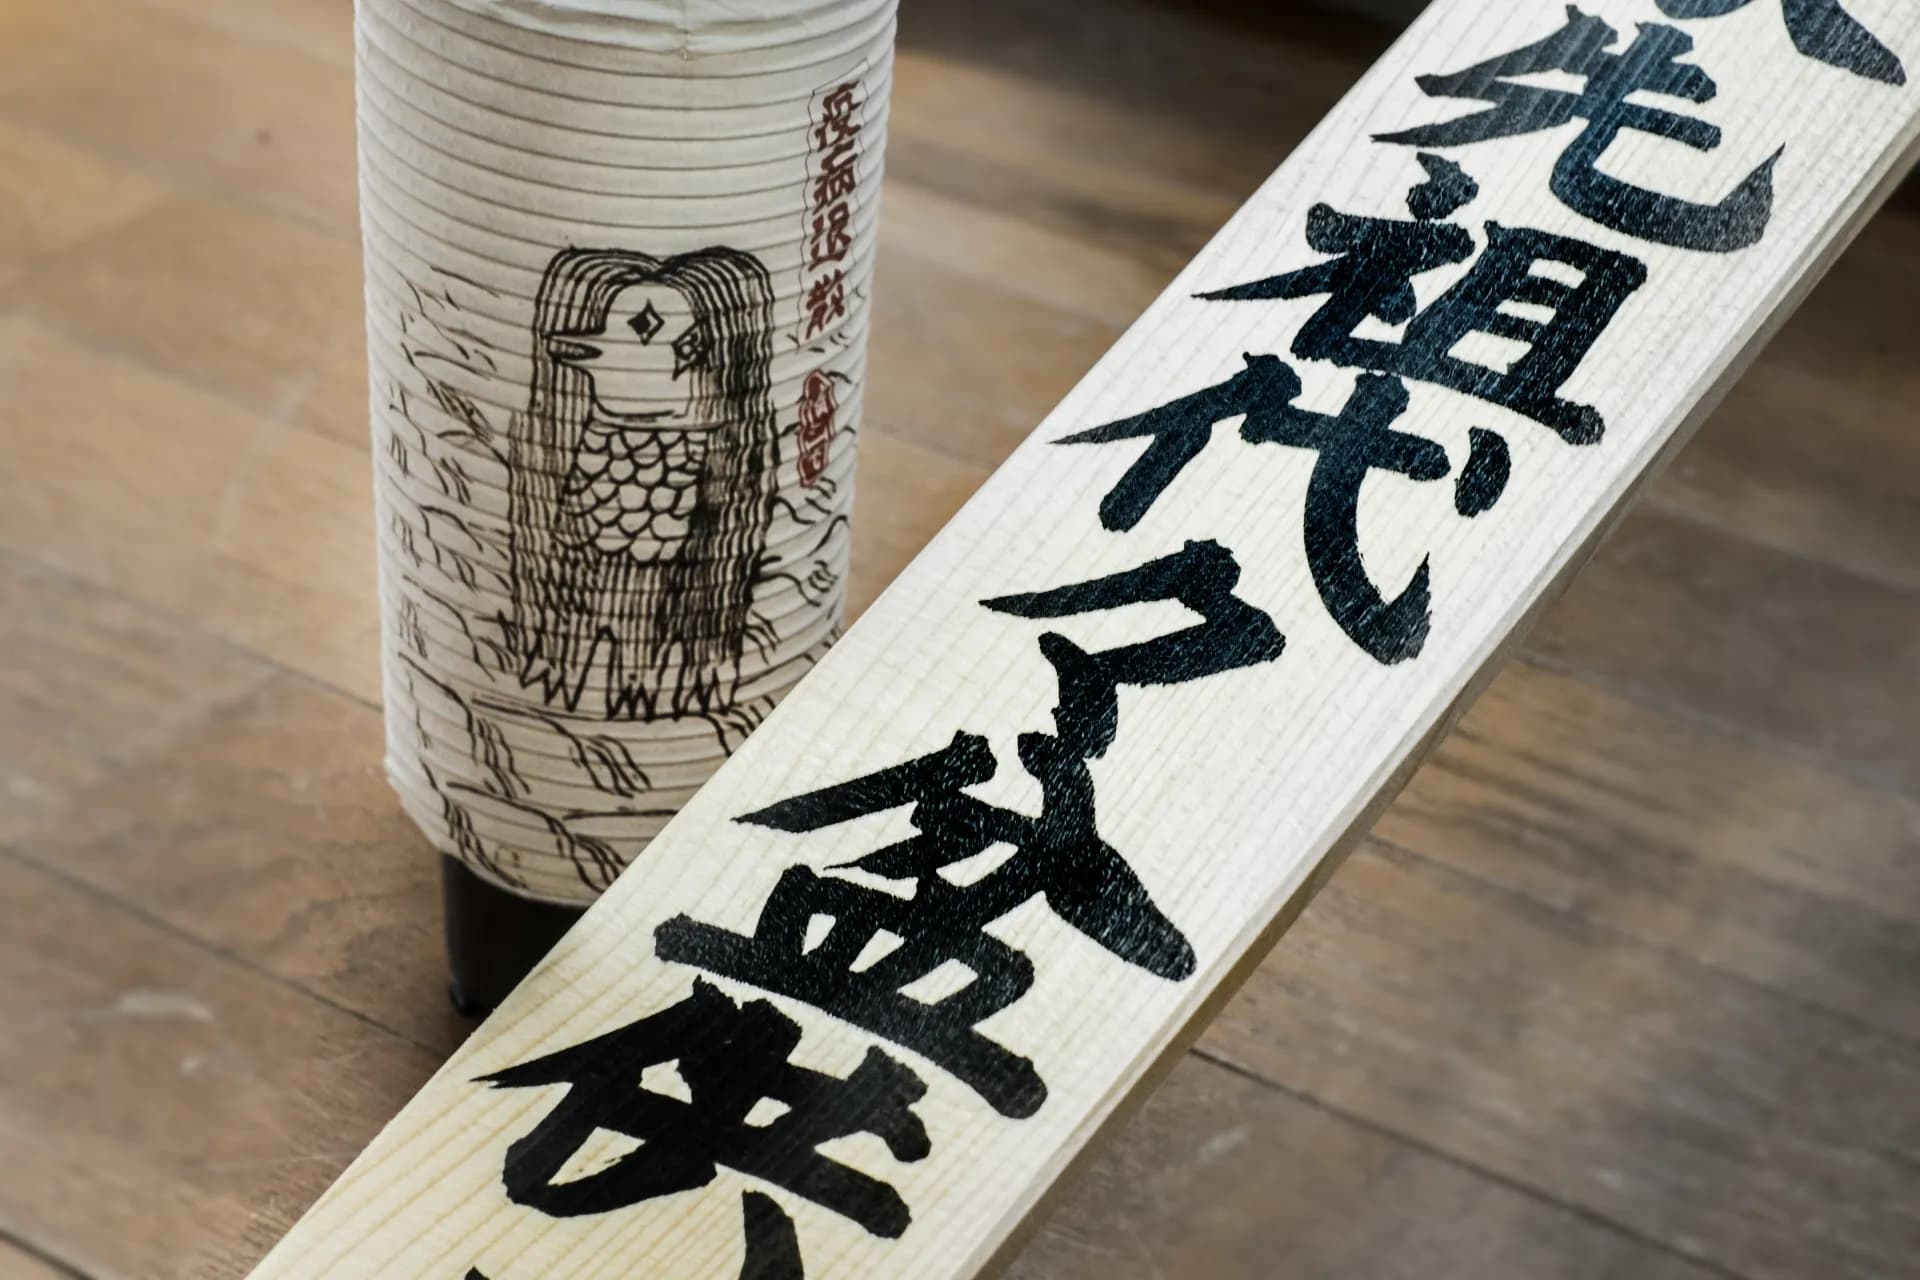 疫病退散
先祖代々盆供